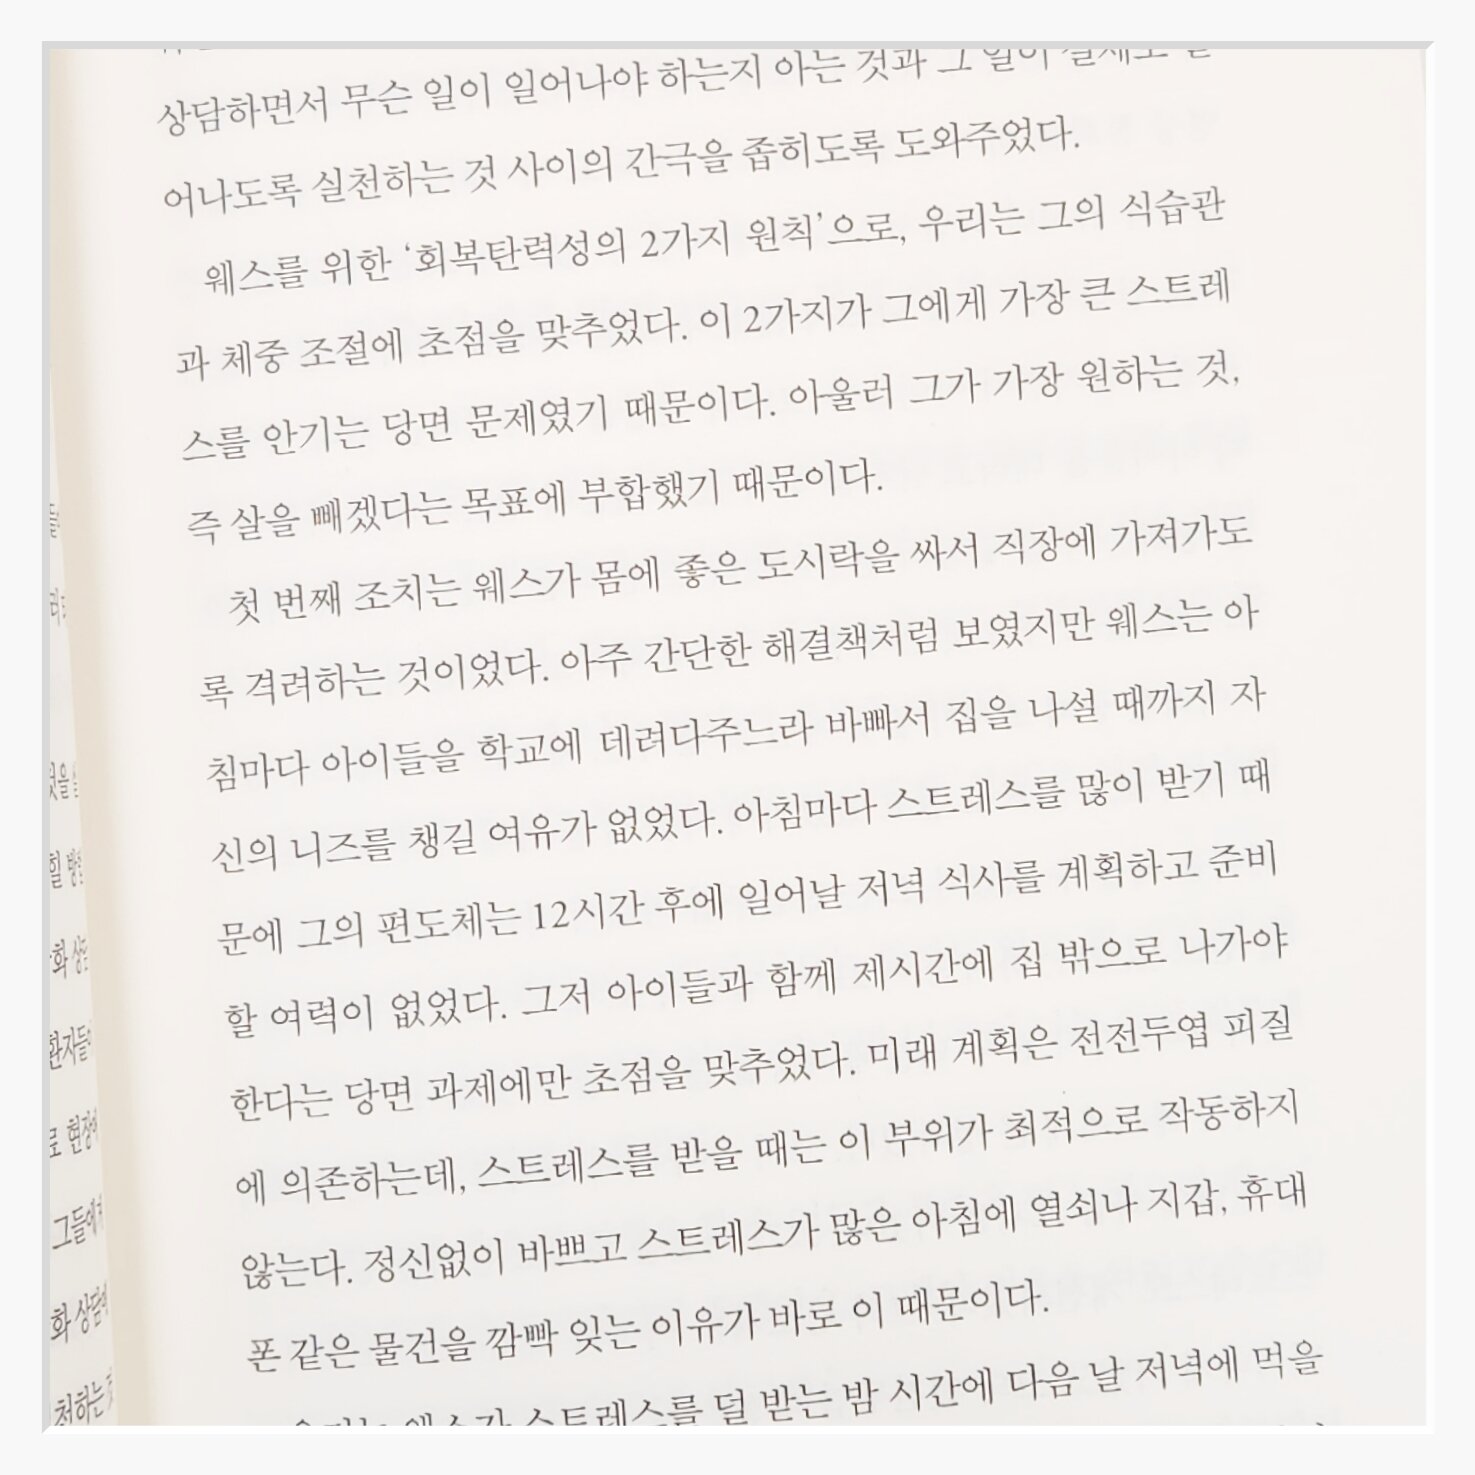 상담하면서 무슨 일이 일어나야 하는지 아는 것과 그 일이 실제로 일
어나도록 실천하는 것 사이의 간극을 좁히도록 도와주었다.
웨스를 위한 ‘회복탄력성의 2가지 원칙’으로, 우리는 그의 식습관
과 체중 조절에 초점을 맞추었다. 이 2가지가 그에게 가장 큰 스트레
스를 안기는 당면 문제였기 때문이다. 아울러 그가 가장 원하는 것,
즉 살을 빼겠다는 목표에 부합했기 때문이다.
첫 번째 조치는 웨스가 몸에 좋은 도시락을 싸서 직장에 가져가도
록 격려하는 것이었다. 아주 간단한 해결책처럼 보였지만 웨스는 아
침마다 아이들을 학교에 데려다주느라 바빠서 집을 나설 때까지 자
신의 니즈를 챙길 여유가 없었다. 아침마다 스트레스를 많이 받기 때
문에 그의 편도체는 12시간 후에 일어날 저녁 식사를 계획하고 준비
할 여력이 없었다. 그저 아이들과 함께 제시간에 집 밖으로 나가야
한다는 당면 과제에만 초점을 맞추었다. 미래 계획은 전전두엽 피질
에 의존하는데, 스트레스를 받을 때는 이 부위가 최적으로 작동하지
않는다. 정신없이 바쁘고 스트레스가 많은 아침에 열쇠나 지갑, 휴대
폰 같은 물건을 깜빡 잊는 이유가 바로 이 때문이다.
스트레스를 덜 받는 밤 시간에 다음 날 저녁에 먹을